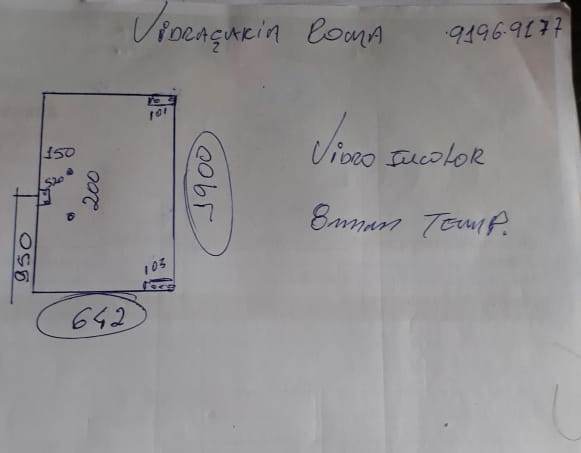 VIDRAÇARIA ROMA 9196.9177
101
150
520
200
1900
VIDRO INCOLOR
8mm TEMP.
950
103
642